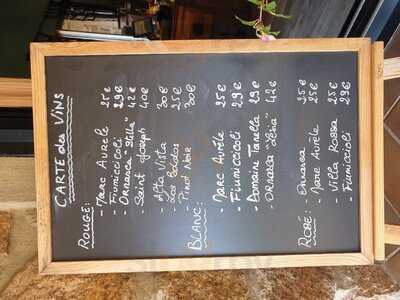 CARTE des VINS
ROUGE:
- Marc Aurele 25€
- Fiumiccicoli 29€
- Ornasca "Stella" 42€
- Saint Joseph 40€
- Alta Vista 30€
- Los Boldos 25€
- Pinot Noir 30€
BLANC:
- Marc Aurèle 25€
- Fiumiccicoli 29€
- Domaine Tanella 29€
- Ornasca 42€
ROSÉ:
- Ornasca 35€
- Marc Aurèle 25€
- Villa Rossa 25€
- Fiumiccioli 29€